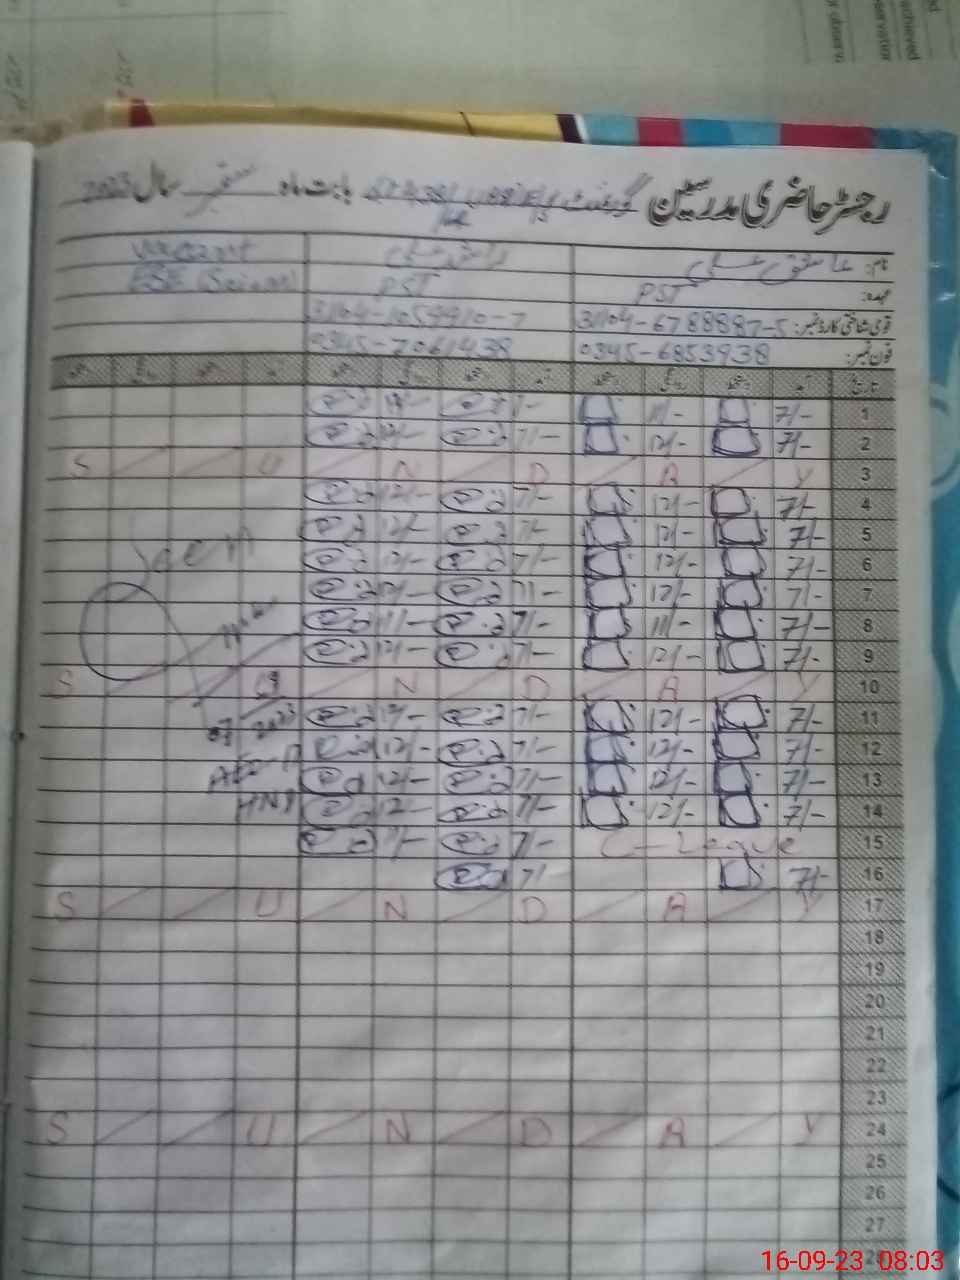 رجسٹر حاضری مدرسین گورنمنٹ پرائمری بابت ماہ ستمبر سال 2023
نام: عاشق علی vacant
عہدہ: PST PST ESE (Science)
قومی شناختی کارڈ نمبر: 31104-6788887-5 31104-1059910-7
فون نمبر: 0345-6853938 0345-7061438
تاریخ آمد دستخط روانگی دستخط آمد دستخط روانگی دستخط آمد دستخط روانگی دستخط
1 7/- 11/- 7/- 11/-
2 7/- 12/- 7/- 12/-
3 S U N D A Y
4 7/- 12/- 7/- 12/-
5 7/- 12/- 7/- 12/-
6 7/- 12/- 7/- 12/-
Seen
7 7/- 12/- 7/- 12/-
8 7/- 11/- 7/- 11/-
9 7/- 12/- 7/- 12/-
10 S U N D A Y
11 7/- 12/- 7/- 12/-
12 7/- 12/- 7/- 12/-
13 7/- 12/- 7/- 12/-
14 7/- 12/- 7/- 12/-
15 C-Leave 7/- 11/-
16 7/- 7/-
17 S U N D A Y
18
19
20
21
22
23
24 S U N D A Y
25
26
27
28
16-09-23 08:03